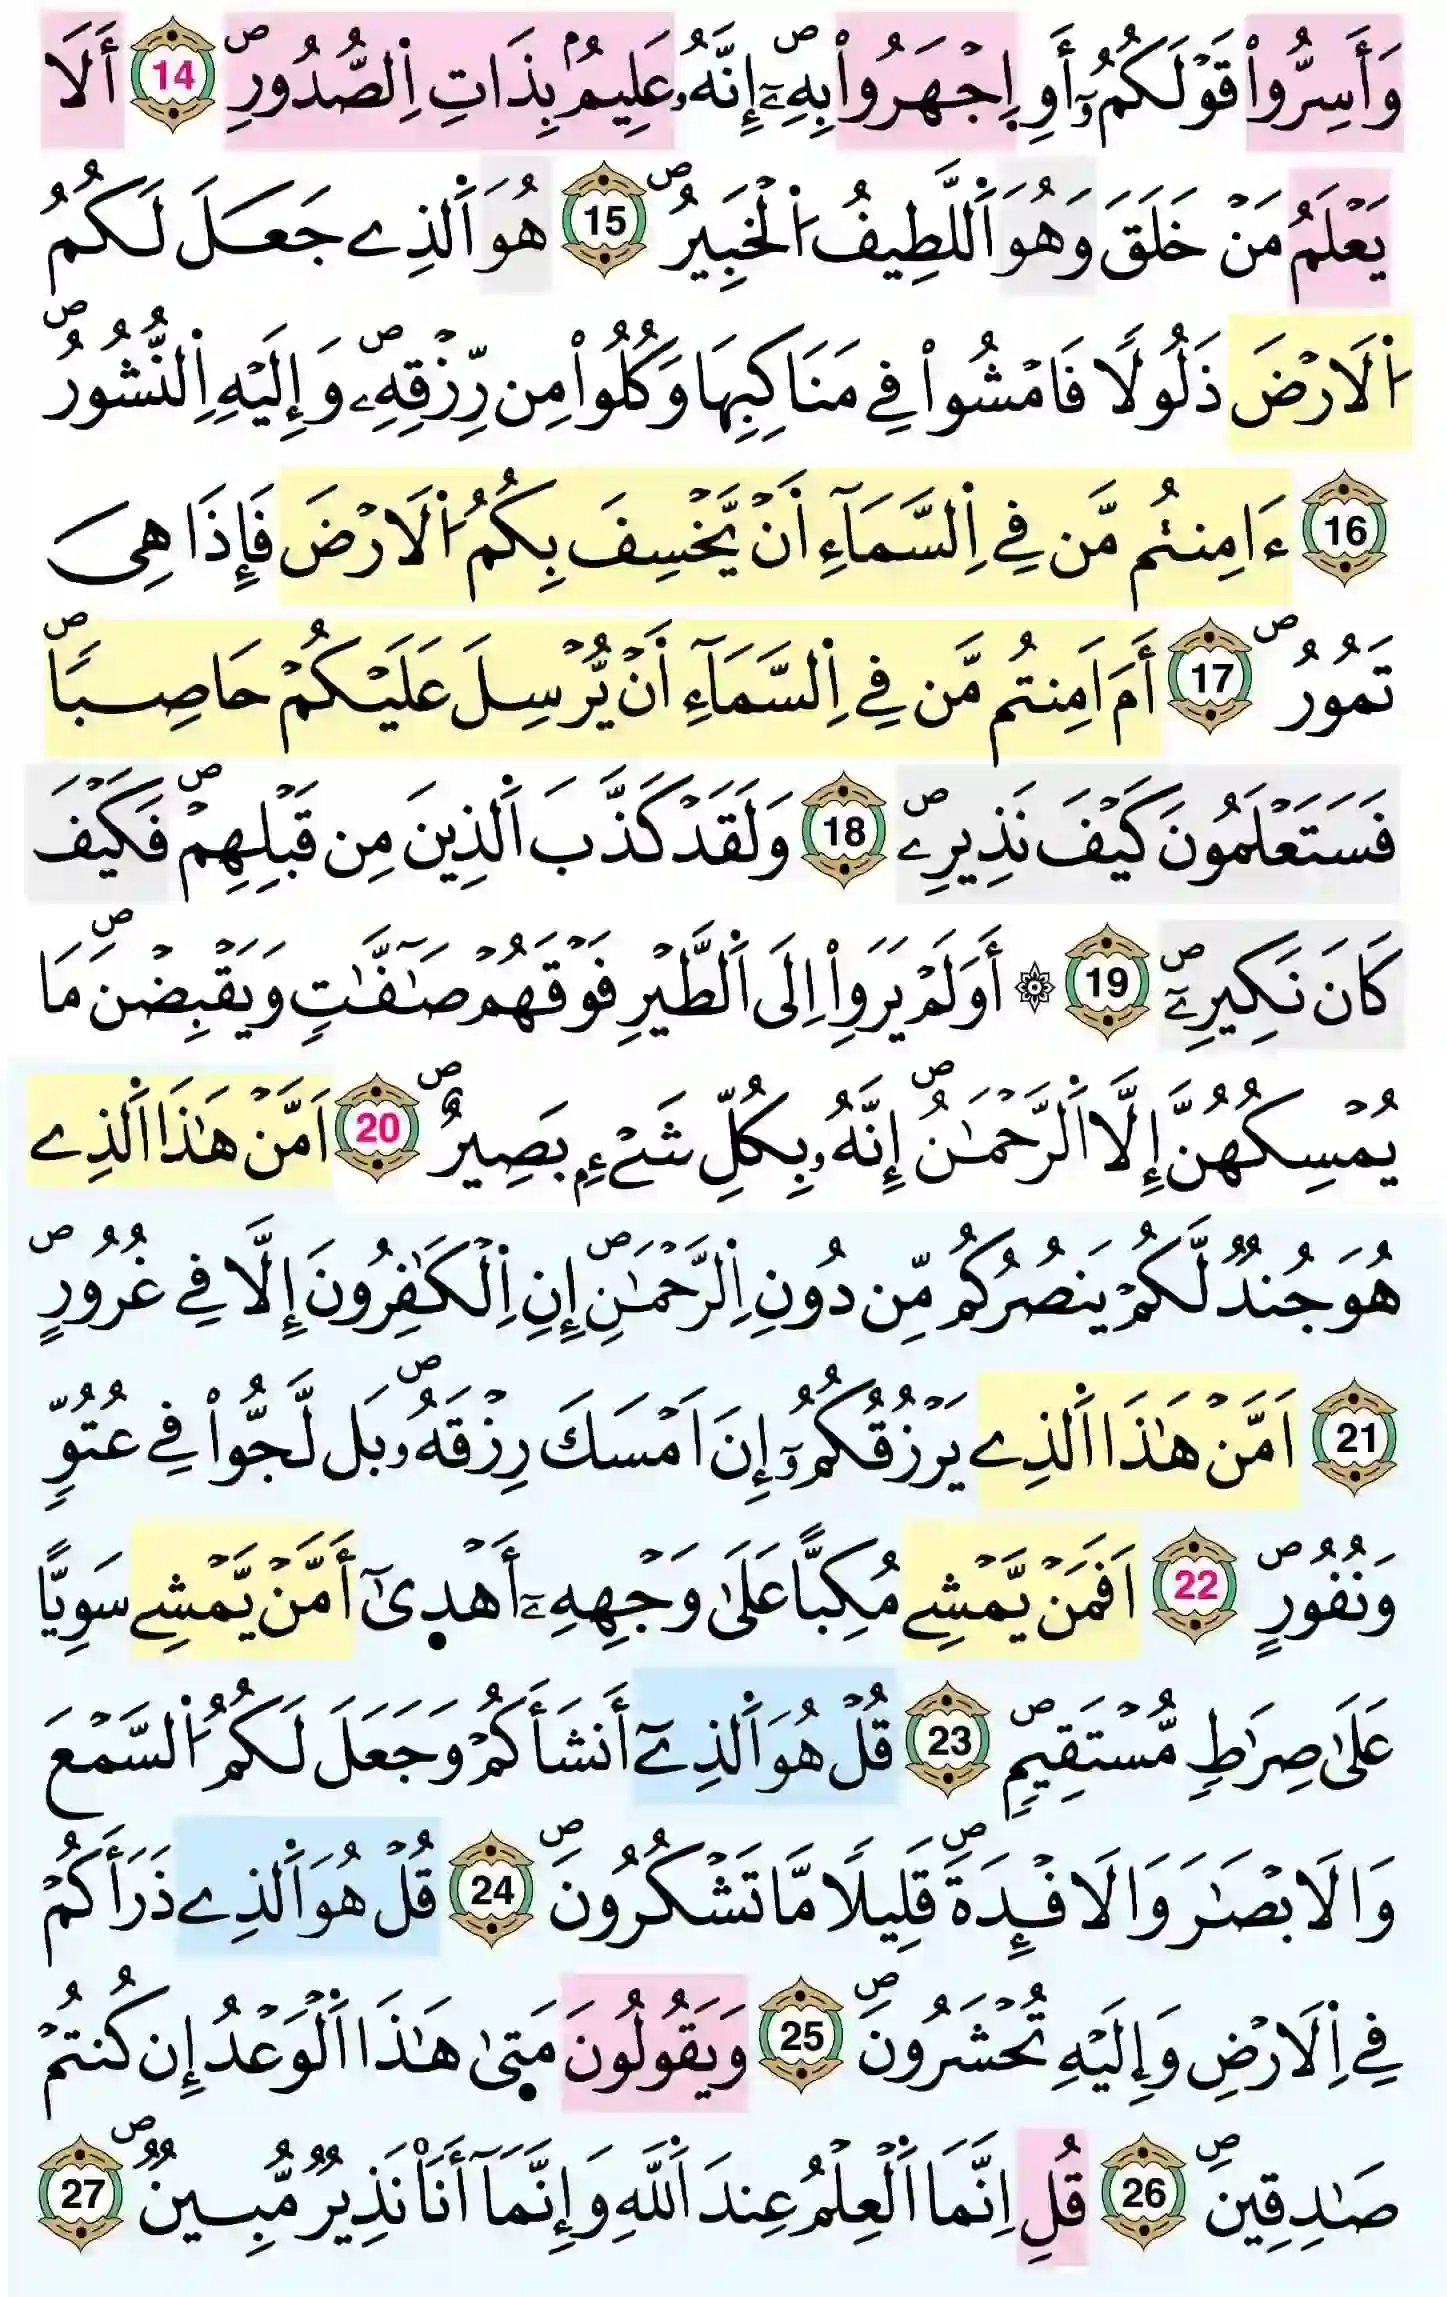 وَأَسِرُّواْ قَوْلَكُمُۥٓ أَوِ اِ۪جْهَرُواْ بِهِۦٓۖ إِنَّهُۥ عَلِيمُۢ بِذَاتِ اِ۬لصُّدُورِۖ 14 أَلَا
يَعْلَمُ مَنْ خَلَقَ وَهُوَ اَ۬للَّطِيفُ اُ۬لْخَبِيرُۖ 15 هُوَ اَ۬لذِے جَعَلَ لَكُمُ
اُ۬لَارْضَ ذَلُولاٗ فَامْشُواْ فِے مَنَاكِبِهَا وَكُلُواْ مِن رِّزْقِهِۦۖ وَإِلَيْهِ اِ۬لنُّشُورُۖ
16 ءَآمِنتُم مَّن فِے اِ۬لسَّمَآءِ انْ يَّخْسِفَ بِكُمُ اُ۬لَارْضَ فَإِذَا هِيَ
تَمُورُۖ 17 أَمَ اَمِنتُم مَّن فِے اِ۬لسَّمَآءِ انْ يُّرْسِلَ عَلَيْكُمْ حَاصِباٗۖ
فَسَتَعْلَمُونَ كَيْفَ نَذِيرِۦۖ 18 وَلَقَدْ كَذَّبَ اَ۬لذِينَ مِن قَبْلِهِمْۖ فَكَيْفَ
كَانَ نَكِيرِۦٓۖ 19 ۞ أَوَلَمْ يَرَوِاْ اِلَي اَ۬لطَّيْرِ فَوْقَهُمْ صَٰٓفَّٰتٖ وَيَقْبِضْنَۖ مَا
يُمْسِكُهُنَّ إِلَّا اَ۬لرَّحْمَٰنُۖ إِنَّهُۥ بِكُلِّ شَےْءِۢ بَصِيرٌۖ 20 اَمَّنْ هَٰذَا اَ۬لذِے
هُوَ جُندٞ لَّكُمْ يَنصُرُكُم مِّن دُونِ اِ۬لرَّحْمَٰنِۖ إِنِ اِ۬لْكَٰفِرُونَ إِلَّا فِے غُرُورٍۖ
21 اَمَّنْ هَٰذَا اَ۬لذِے يَرْزُقُكُمُۥٓ إِنَ اَمْسَكَ رِزْقَهُۥۖ بَل لَّجُّواْ فِے عُتُوّٖ
وَنُفُورٍۖ 22 اَفَمَنْ يَّمْشِے مُكِبّاً عَلَىٰ وَجْهِهِۦٓ أَهْد۪يٰٓ أَمَّنْ يَّمْشِے سَوِيّاً
عَلَىٰ صِرَٰطٖ مُّسْتَقِيمٖۖ 23 قُلْ هُوَ اَ۬لذِےٓ أَنشَأَكُمْ وَجَعَلَ لَكُمُ اُ۬لسَّمْعَ
وَالَابْصَٰرَ وَالَافْـِٕدَةَۖ قَلِيلاٗ مَّا تَشْكُرُونَۖ 24 قُلْ هُوَ اَ۬لذِے ذَرَأَكُمْ
فِے اِ۬لَارْضِ وَإِلَيْهِ تُحْشَرُونَۖ 25 وَيَقُولُونَ مَت۪يٰ هَٰذَا اَ۬لْوَعْدُ إِن كُنتُمْ
صَٰدِقِينَۖ 26 قُلِ اِنَّمَا اَ۬لْعِلْمُ عِندَ اَ۬للَّهِ وَإِنَّمَآ أَنَا۠ نَذِيرٞ مُّبِينٞۖ 27